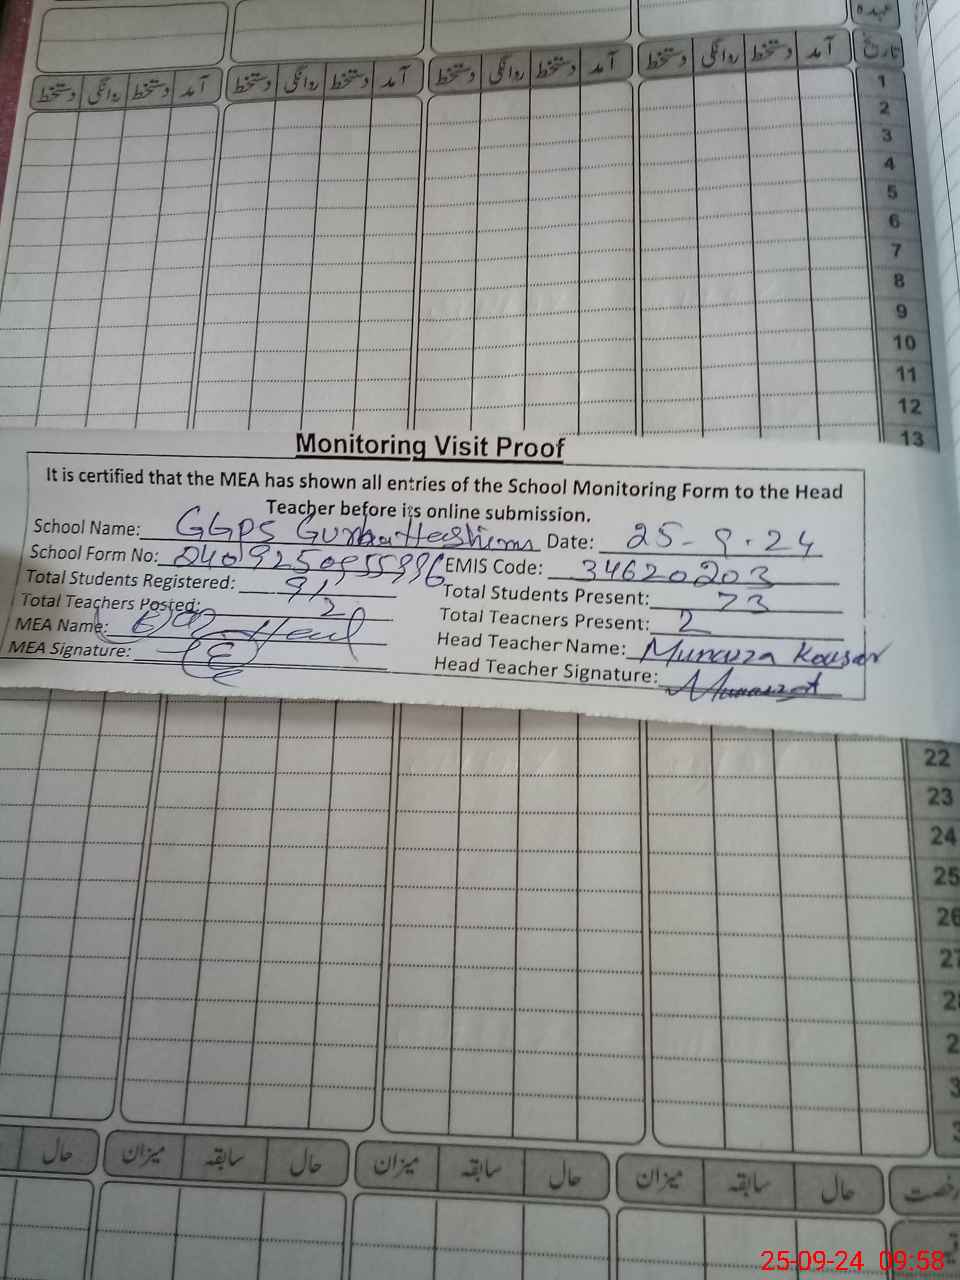 عہدہ
دستخط روانگی دستخط آمد دستخط روانگی دستخط آمد دستخط روانگی دستخط آمد دستخط روانگی دستخط آمد تاریخ
1
2
3
4
5
6
7
8
9
10
11
12
13
Monitoring Visit Proof
It is certified that the MEA has shown all entries of the School Monitoring Form to the Head
Teacher before its online submission.
School Name: GGPS Date: 25-9-24
School Form No: EMIS Code: 34620203
Total Students Registered: 91 Total Students Present: 73
Total Teachers Posted: 2 Total Teacners Present: 2
MEA Name: Head Teacher Name: Munawza Kousar
MEA Signature: Head Teacher Signature:
22
23
24
25
26
27
حال میزان سابقہ حال میزان سابقہ حال میزان سابقہ حال رخصت
25-09-24 09:58